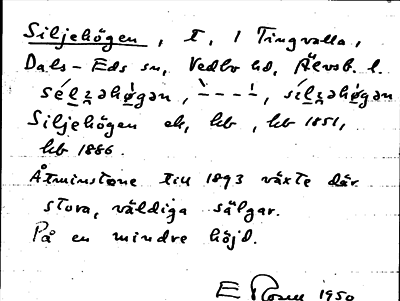 Siljehögen, t, 1 Tingvalla,
Dals-Eds sn, Vedbo hd, Älvsb. l.
sélzəhøgən, \----!, sílzəhøgən
Siljehögen ek, kb, kb 1851,
kb 1886.
Åtminstone till 1893 växte där
stora, väldiga sälgar.
På en mindre höjd.
E Rosen 1950